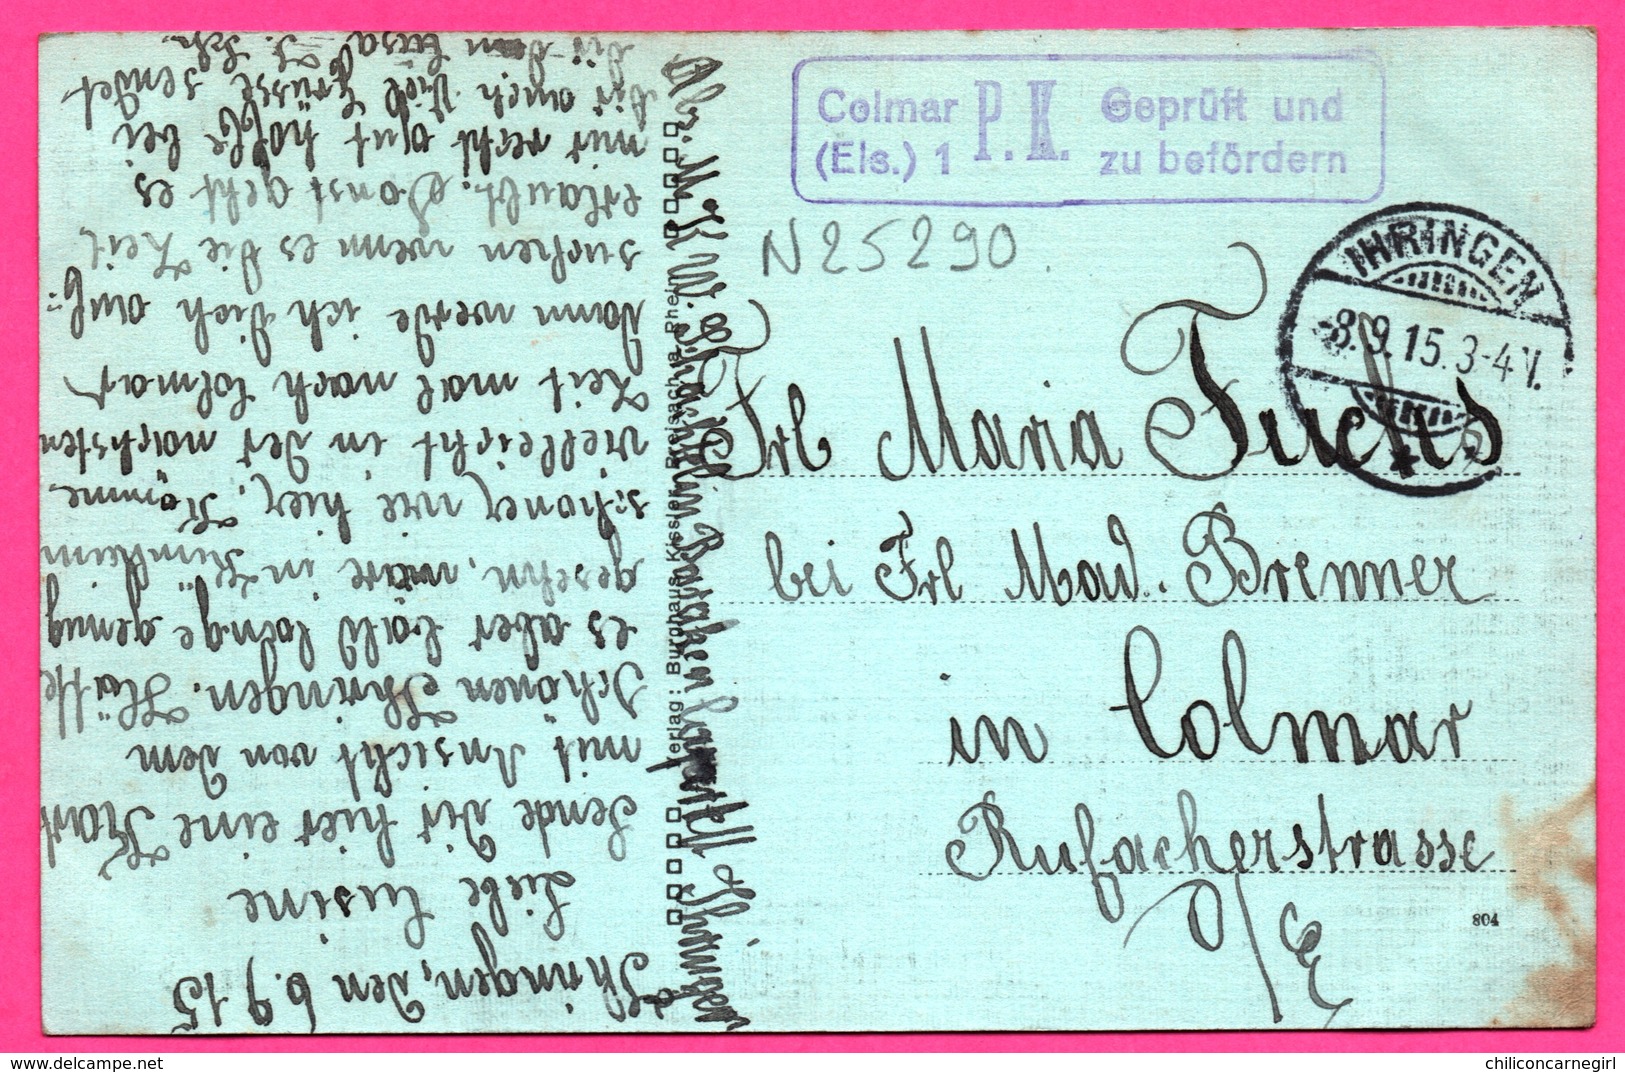 Colmar P. K. Geprüft und
(Els.) 1 zu befördern
N 25290
IHRINGEN
-8.9.15.3-4V.
Frl Maria Fuchs
bei Frl Mad. Brenner
in Colmar
Rufacherstrasse
O/E
804
Verlag: Burghaus-Kissler, Breisach a. Rhein
Ihringen, den 6.9.15
Liebe Cusine
Sende Dir hier eine Kart
mit Ansicht von dem
Schönen Ihringen. Hätte
es aber bald lange genug
gesehn, wäre in Künheim
schöner, wie hier, Komme
vielleicht in der nachsten
Zeit mal nach Colmar
dann werde ich Dich auf-
suchen wenn es die Zeit
erlaubt. Sonst geht es
mir recht gut hoffe bei
dir auch Viel Grüsse sendet
dir dein Cusa J. Sch.
Ihringen
chiliconcarnegirl